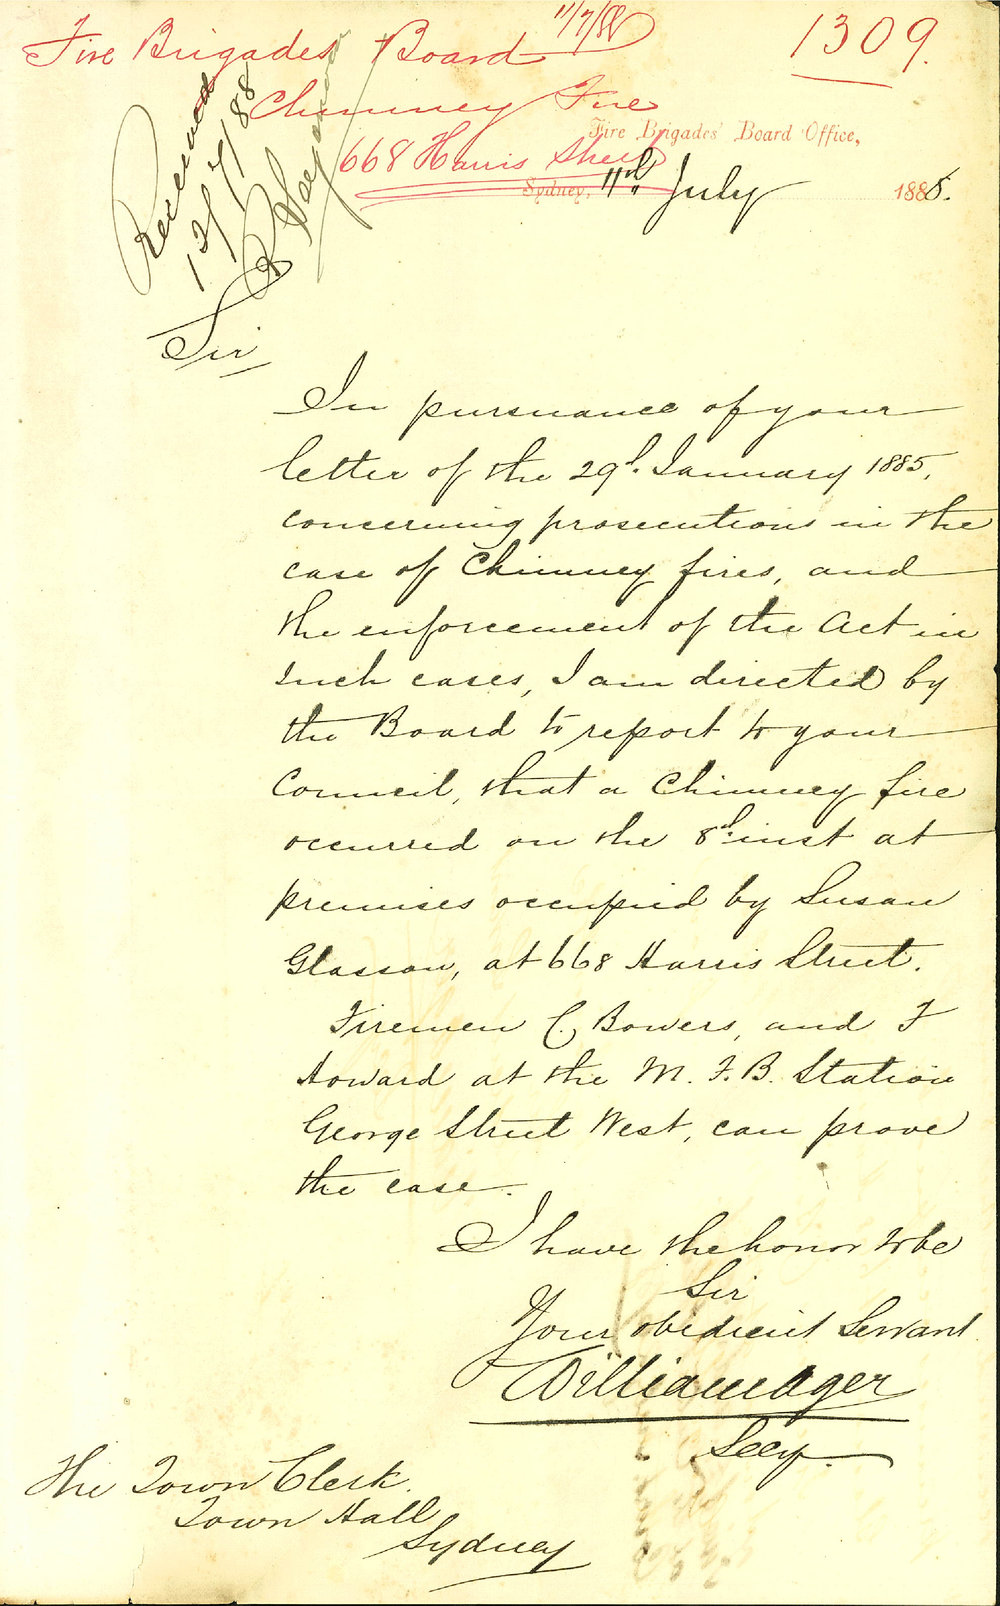 Fire Brigades Board 11/7/88
1309.
Chimney Fire
668 Harris Street
Fire Brigades' Board Office,
Sydney, 11th July 1888.
Received
12/7/88
Sir
In pursuance of your
letter of the 29th January 1885,
concerning prosecutions in the
case of Chimney fires, and
the enforcement of the Act in
such cases, I am directed by
the Board to report to your
Council, that a Chimney fire
occurred on the 8th inst at
premises occupied by Susan
Glasson, at 668 Harris Street.
Firemen C. Bowers, and F
Howard at the M. F. B. Station
George Street West, can prove
the case.
I have the honor to be
Sir
Your obedient Servant
William Ager
Secy.
The Town Clerk.
Town Hall
Sydney